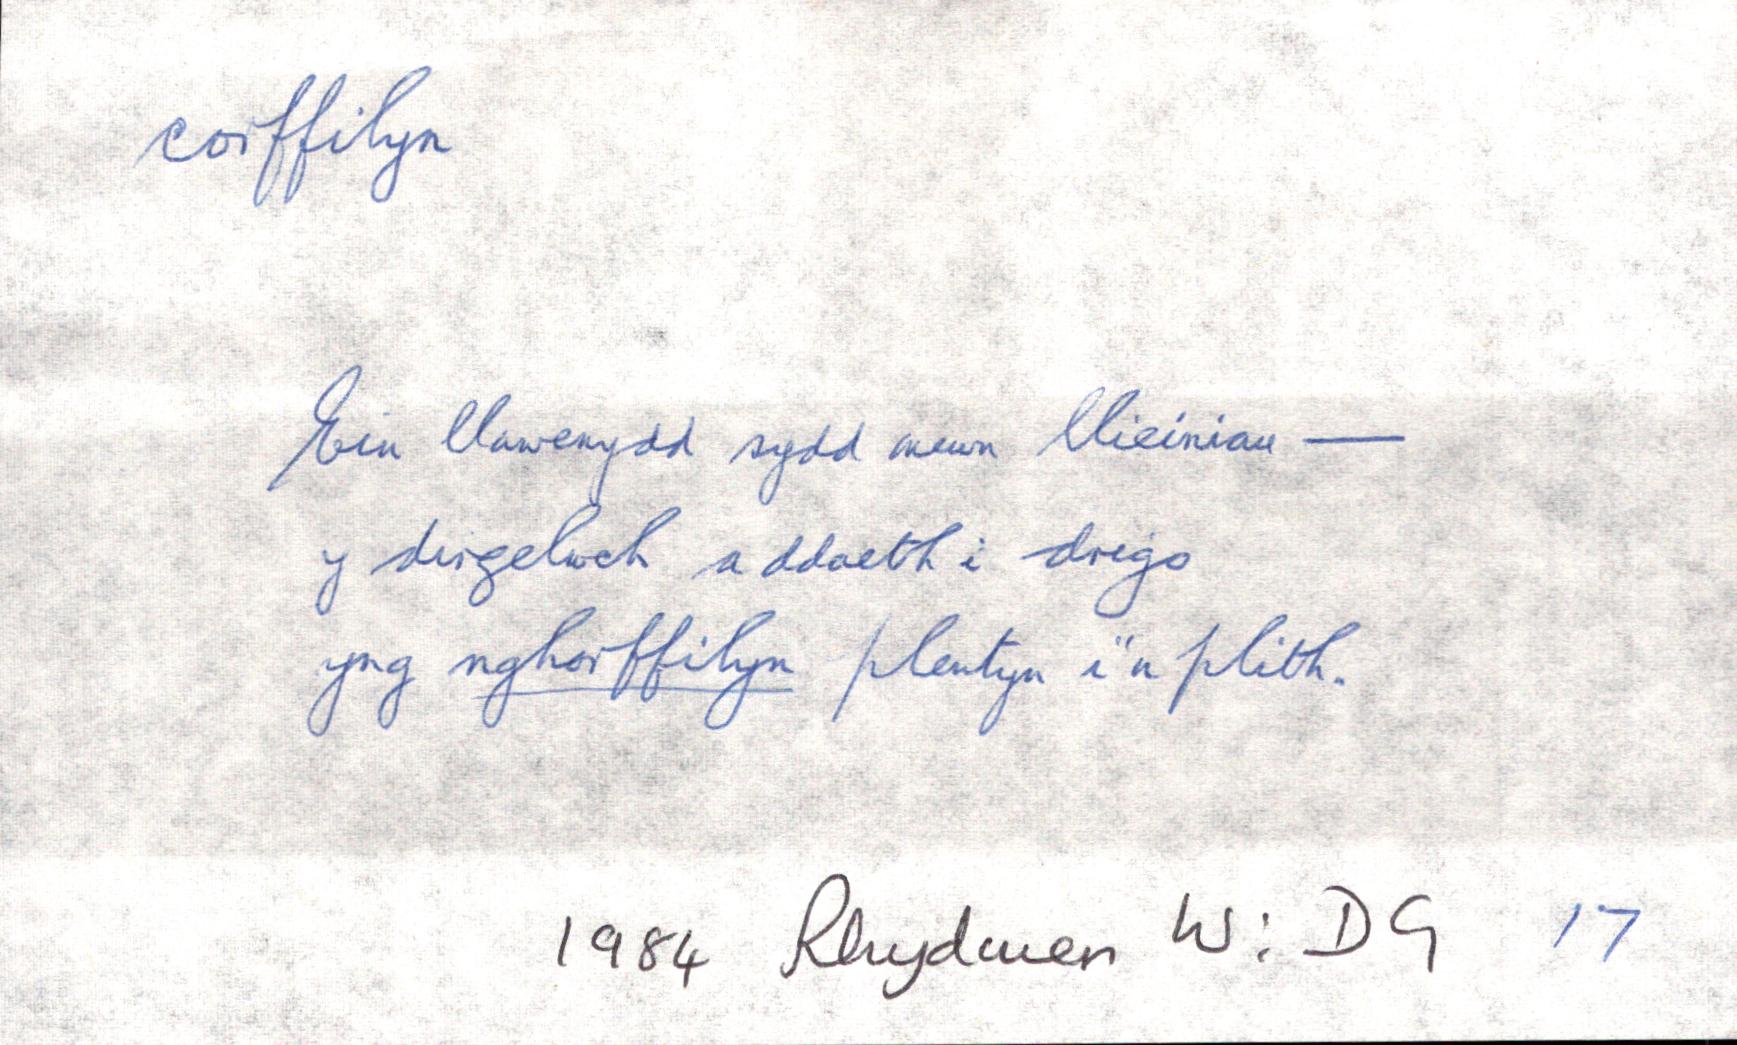 corffilyn
Ein llawenydd sydd mewn llieiniau —
y dirgelwch a ddaeth i drigo
yng nghorffilyn plentyn i'n plith.
1984 Rhydwen W: DG 17